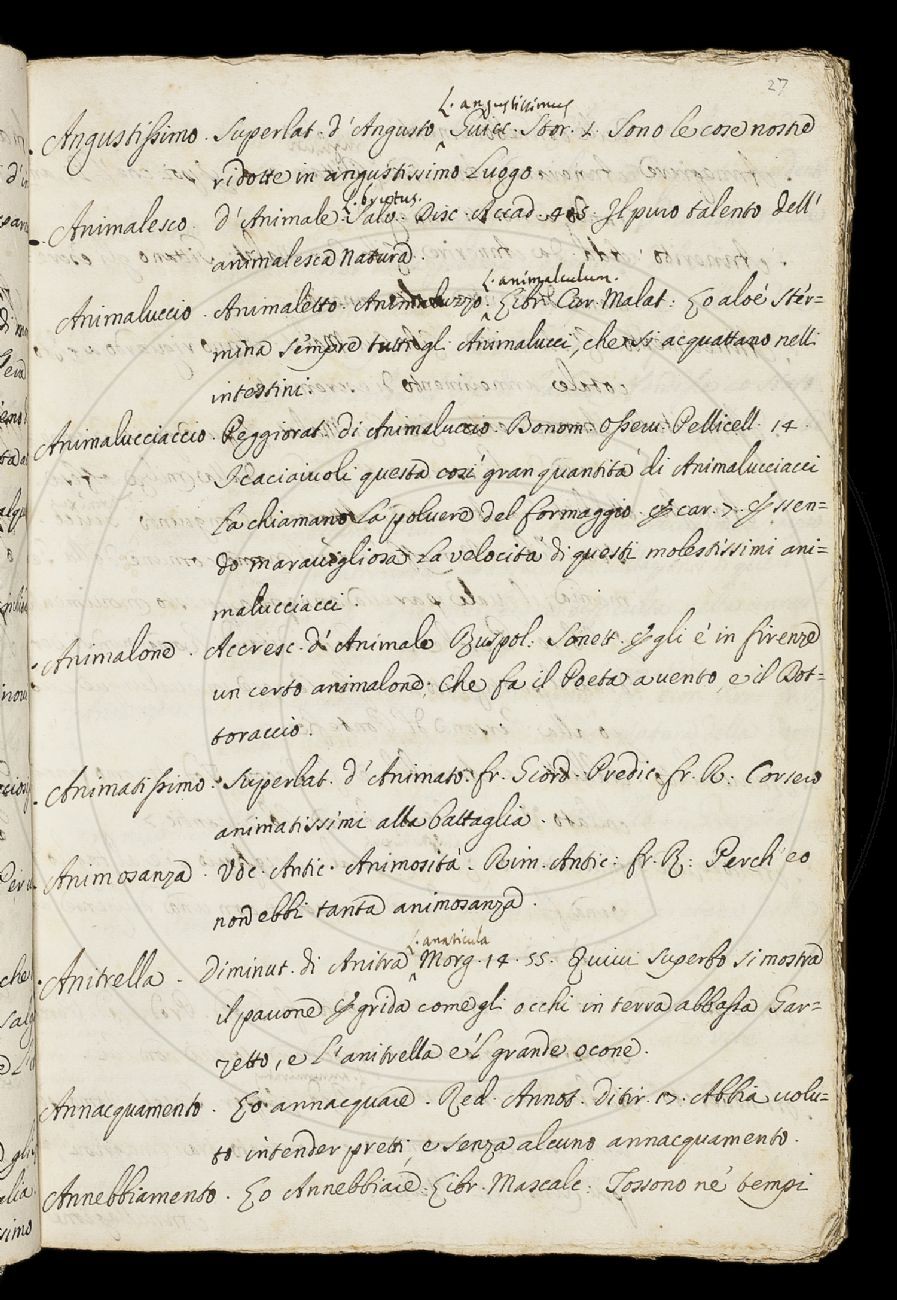 27
L. angustissimus
Angustissimo. Superlat. d'Angusto Guicc. Stor. 1. Sono le cose nostre
ridotte in angustissimo Luogo
L. brutus.
Animalesco d'Animale Salv. Disc. Accad. 405. Il puro talento dell'
animalesca natura.
L. animalculum.
Animaluccio. Animaletto. Animaluzzo. Libr. Cur. Malat: Lo aloè stér=
mina sempre tutti gli Animalucci, che si acquattano nelli
intestini.
Animalucciaccio Peggiorat. di Animaluccio. Bonom. Osserv. Pellicell. 14.
I caciaiuoli questa così gran quantità di Animalucciacci
La chiamano La polvere del formaggio. E car. 7. Essen=
do maravigliosa La velocità di questi molestissimi ani=
malucciacci.
Animalone. Accresc. d'Animale Ruspol: Sonett. Egli è in firenze
un certo animalone, Che fa il Poeta a vento, e il Dot=
toraccio.
Animatissimo. Superlat. d'Animato. fr. Giord. Predic. fr. R: Corsero
animatissimi alla battaglia.
Animosanza. Voc. Antic. Animosità. Rim. Antic: fr. R: Perch'eo
non ebbi tanta animosanza.
L. anaticula
Anitrella. Diminut. di Anitra Morg. 14. 55. Quivi superbo si mostra
il pavone E grida come gli occhi in terra abbassa Gar=
zetto, e L'anitrella e'l grande ocone.
Annacquamento. Lo annacquare. Red. Annot. Ditir. 17. Abbia volu=
to intender pretti, e senza alcuno annacquamento.
Annebbiamento. Lo Annebbiare. Libr. Mascalc. Tossono ne' tempi